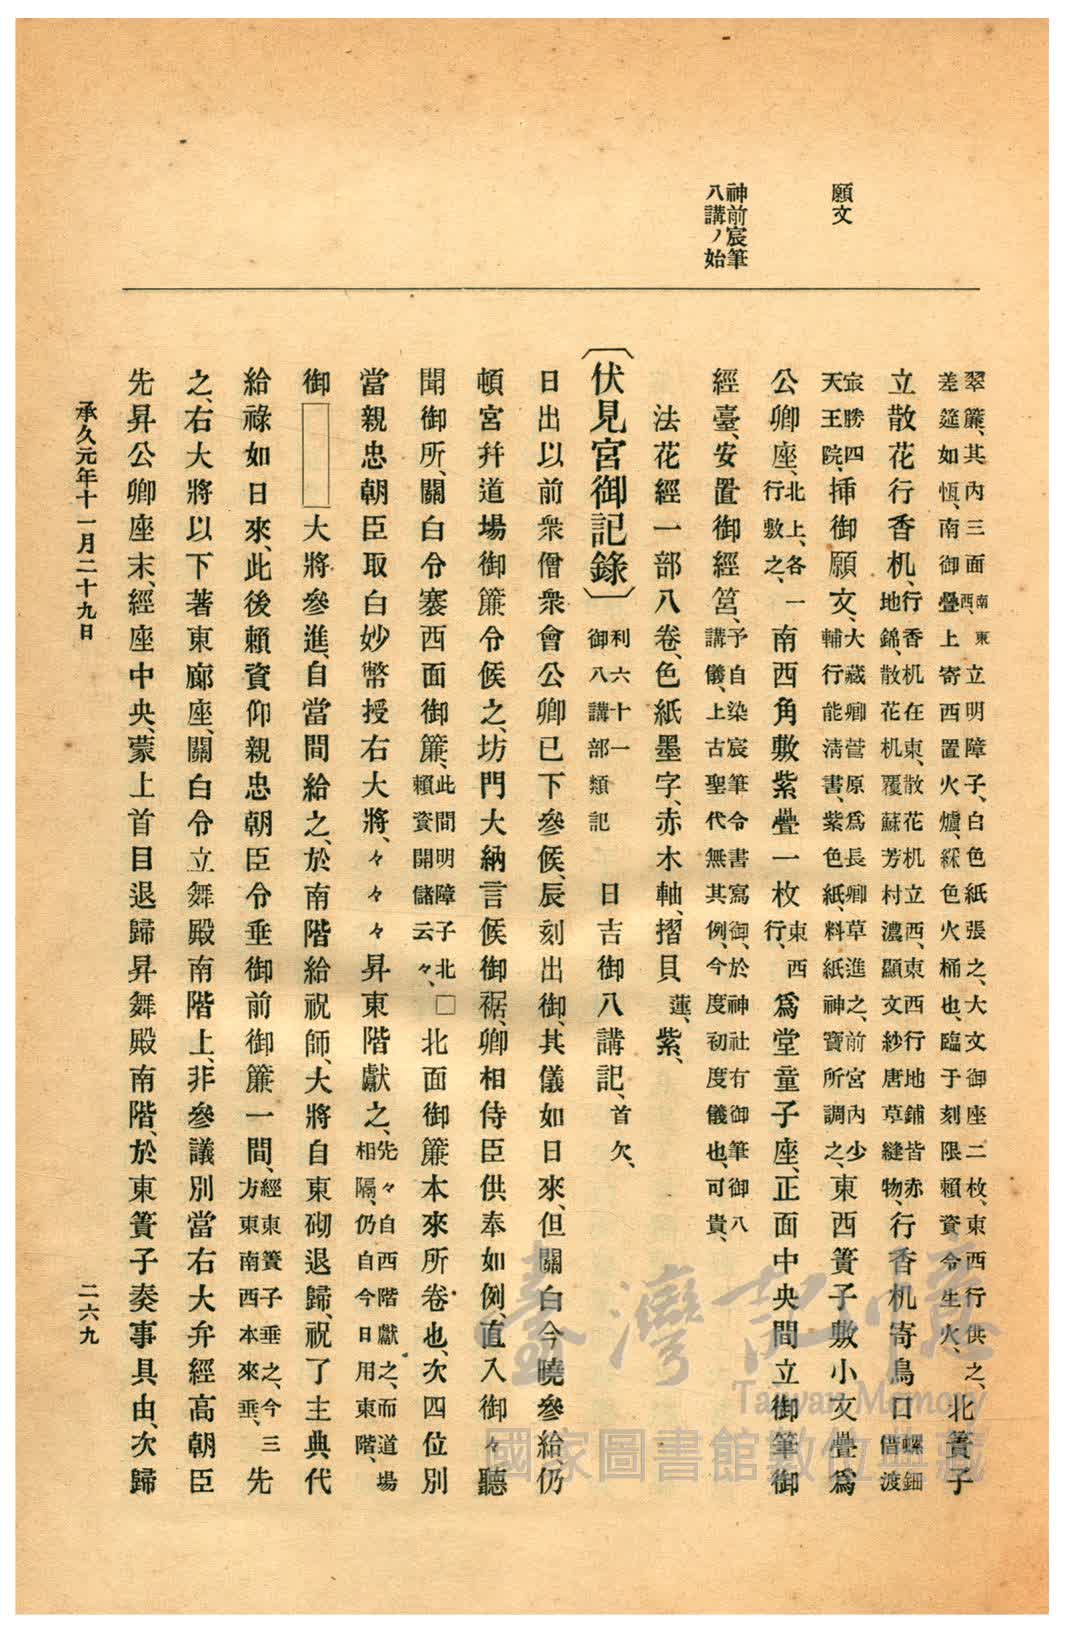 願文
神前宸筆
八講ノ始
翠簾、其内三面南東西、立明障子、白色紙張之、大文御座二枚、東西行供之、
差筵如恆、南御疊上寄西置火爐、綵色火桶也、臨于刻限賴資令生火、北簀子
立散花行香机、行香机在東、散花机立西、東西行地鋪皆赤地錦、散花机覆蘇芳村濃顯文紗唐草縫物、行香机寄鳥口螺鈿借渡
寂勝四天王院、揷御願文、大藏卿菅原爲長卿草進之、前宮内少輔行能淸書、紫色紙、料紙神寶所調之、東西簀子敷小文疊爲
公卿座、北上、各一行敷之、南西角敷紫疊一枚東西行、爲堂童子座、正面中央間立御筆御
經臺、安置御經筥、予自染宸筆令書寫御、於神社有御筆御八講儀、上古聖代無其例、今度初度儀也、可貴、
法花經一部八卷、色紙墨字、赤木軸、摺貝蓮、紫、
〔伏見宮御記錄〕利六十一御八講部類記　日吉御八講記、首欠、
日出以前衆僧衆會公卿已下參候、辰刻出御、其儀如日來、但關白今曉參給仍
頓宮幷道場御簾令候之、坊門大納言候御裾、卿相侍臣供奉如例、直入御々聽
聞御所、關白令褰西面御簾、此間明障子北賴資開儲云々、□北面御簾本來所卷也、次四位別
當親忠朝臣取白妙幣授右大將、々々々昇東階獻之、先々自西階獻之、而道場相隔、仍自今日用東階、
御□大將參進、自當間給之、於南階給祝師、大將自東砌退歸、祝了主典代
給祿如日來、此後賴資仰親忠朝臣令垂御前御簾一間、經東簀子垂之、今三方東南西本來垂、先
之、右大將以下著東廊座、關白令立舞殿南階上、非參議別當右大弁經高朝臣
先昇公卿座末、經座中央、蒙上首目退歸昇舞殿南階、於東簀子奏事具由、次歸
承久元年十一月二十九日
二六九
臺灣記憶
Taiwan Memory
國家圖書館數位典藏